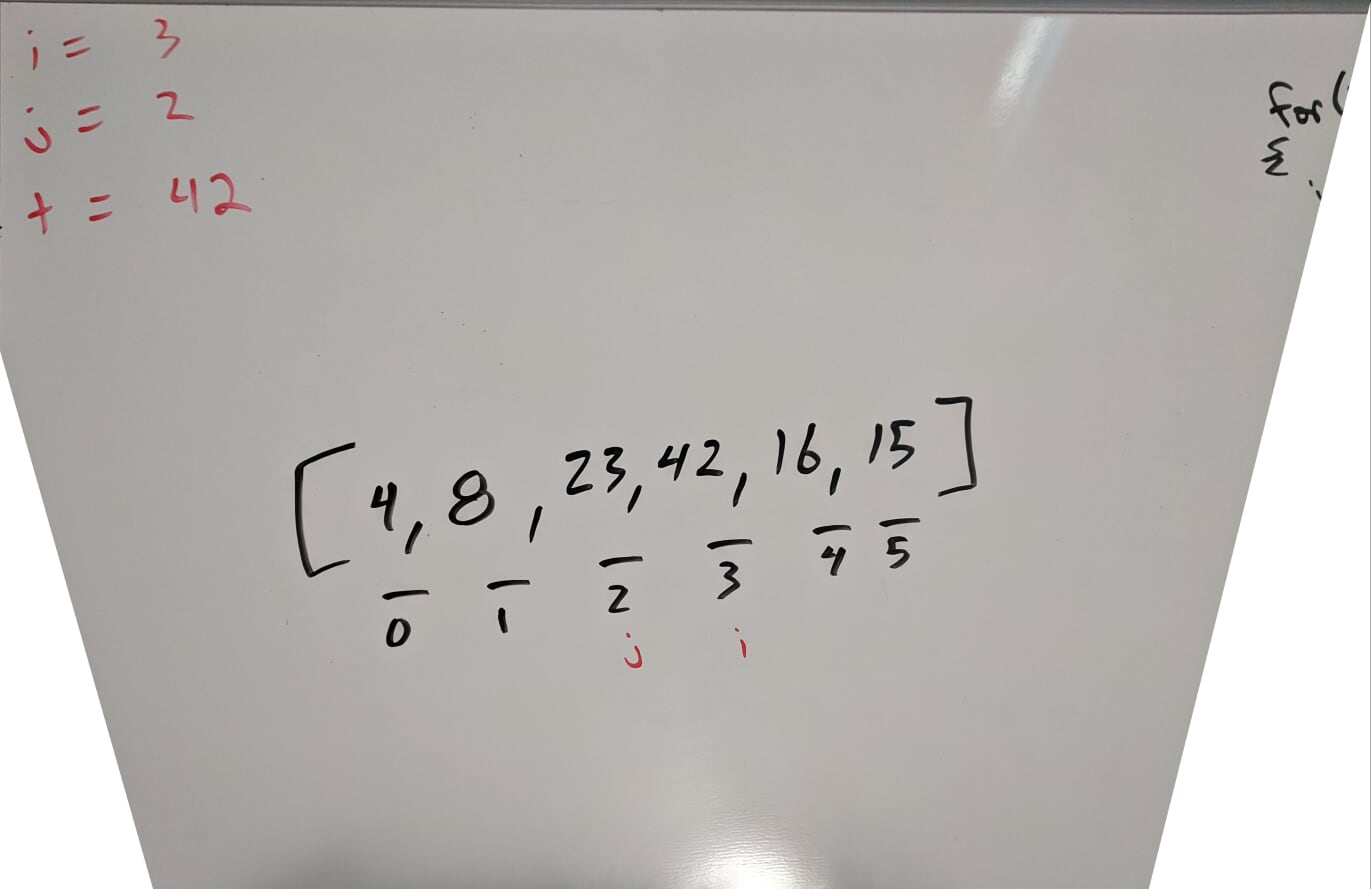 i = 3
j = 2
t = 42
for(
{
[4, 8, 23, 42, 16, 15]
0 1 2 3 4 5
j i